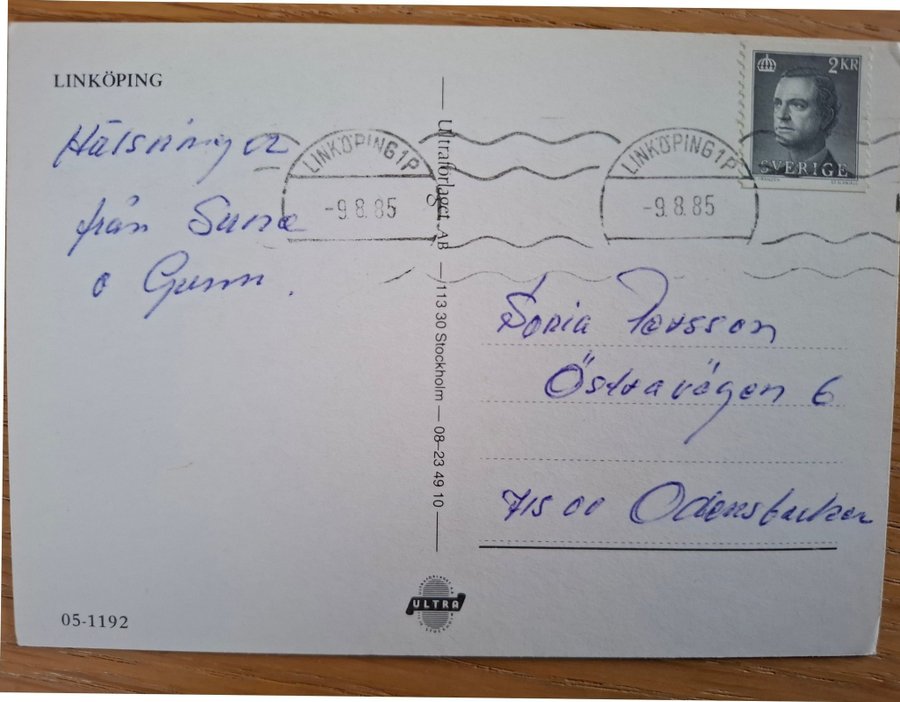 LINKÖPING
Hälsningar
från Sune
o Gunn.
05-1192
Ultraförlaget AB — 113 30 Stockholm — 08-23 49 10
ULTRA
LINKÖPING 1P
-9.8.85
LINKÖPING 1P
-9.8.85
2KR
SVERIGE
Sonia Persson
Östravägen 6
715 00 Odensbacken